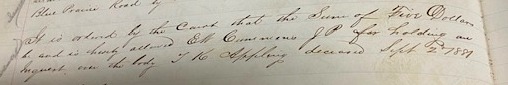 Blue Prairie Road by
It is ordered by the Court that the Sum of Five Dollars
be and is hereby allowed EW Cummons J P for holding an
Inquest over the body T K Appling deceased Sept 2nd 1889